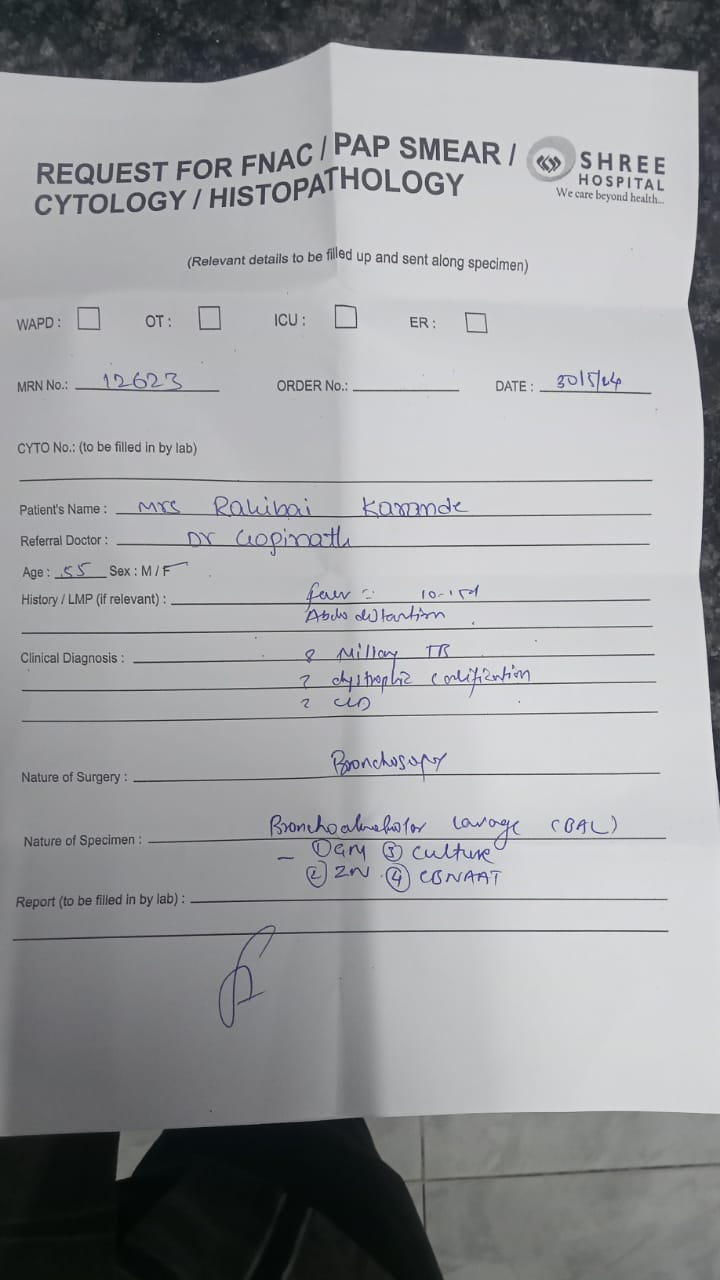 REQUEST FOR FNAC / PAP SMEAR /
CYTOLOGY / HISTOPATHOLOGY
SHREE
HOSPITAL
We care beyond health...
(Relevant details to be filled up and sent along specimen)
WAPD : OT : ICU : ER :
MRN No.: 12623 ORDER No.: DATE : 30/5/24
CYTO No.: (to be filled in by lab)
Patient's Name : Mrs Rahibai
Referral Doctor : Dr Gopinath
Age : 55 Sex : M / F
History / LMP (if relevant) : fever
Abdo
Clinical Diagnosis : ? Millary TB
? dystrophic
?
Nature of Surgery : Bronchoscopy
Nature of Specimen : lavage (BAL)
- ① ③ Culture
② ZN ④ CBNAAT
Report (to be filled in by lab) :